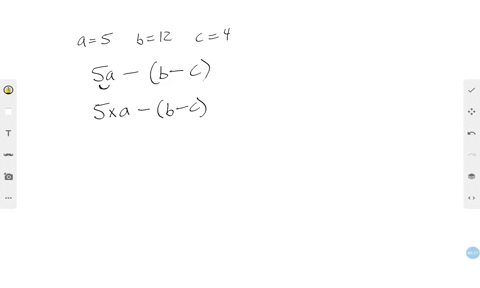 a=5 b=12 c=4
5a - (b-c)
5xa - (b-c)
T